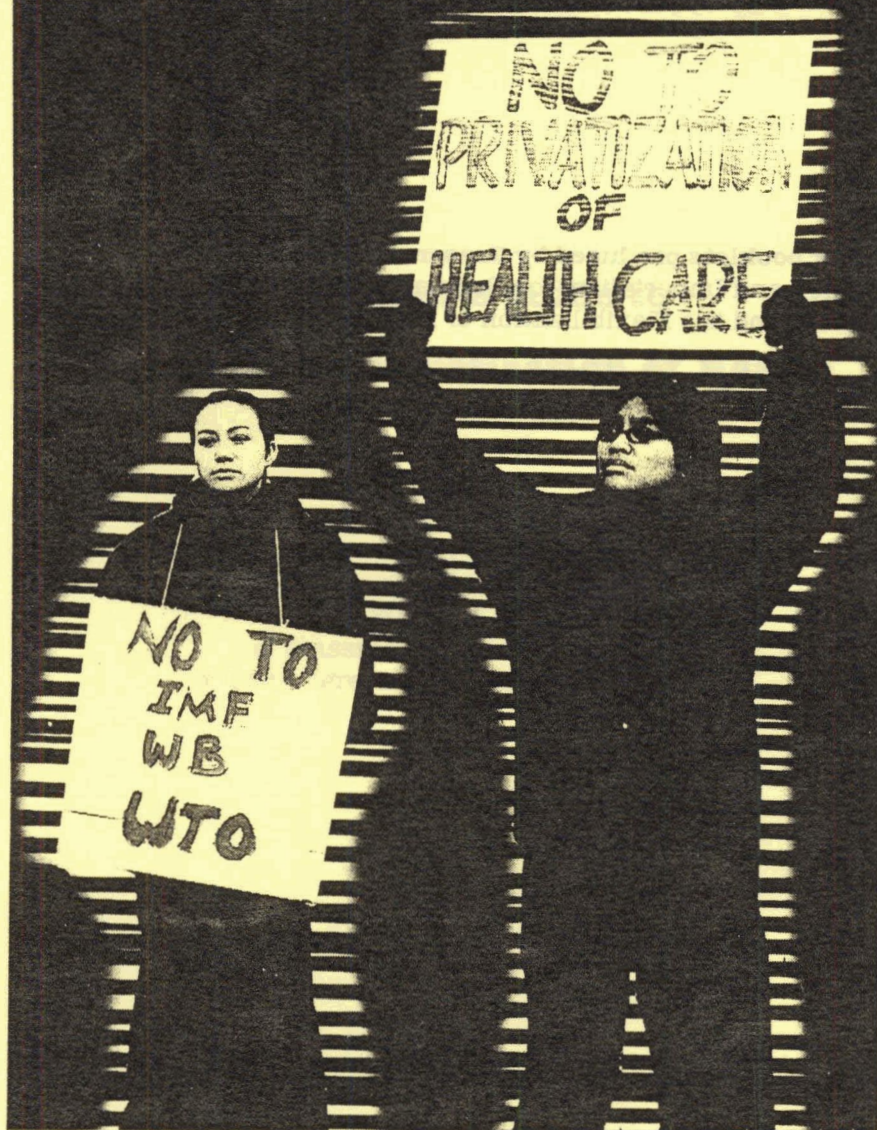 NO TO
PRIVATIZATION
OF
HEALTH CARE
NO TO
IMF
WB
WTO